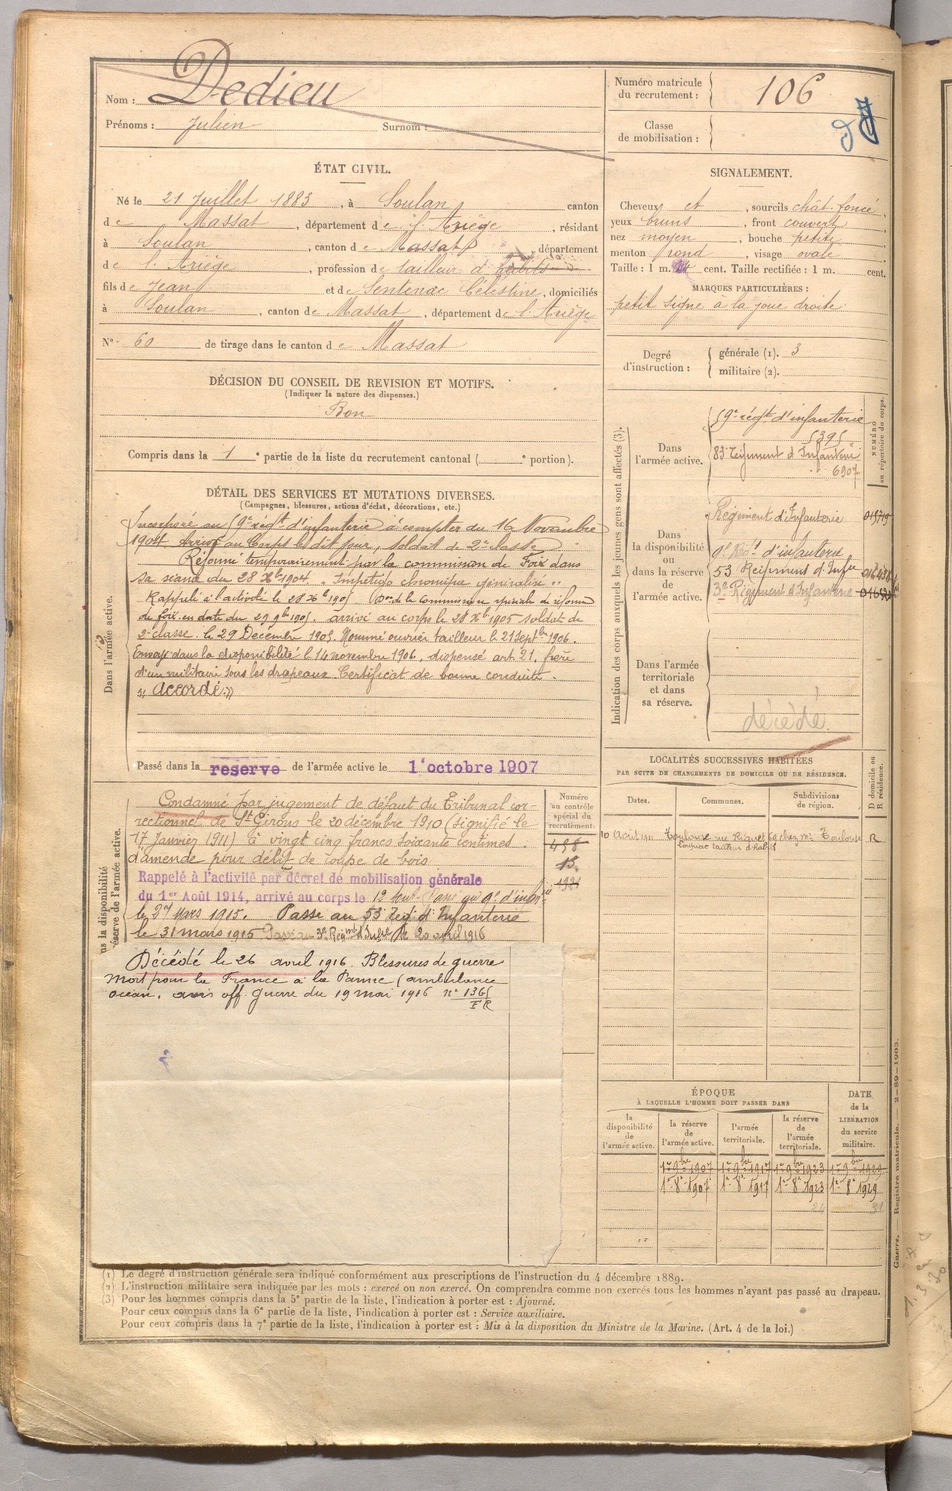 Nom : Dedieu
Prénoms : Julien Surnom :
Numéro matricule du recrutement : 106
Classe de mobilisation :
ÉTAT CIVIL.
Né le 21 Juillet 1883, à Soulan, canton
de Massat, département de l'Ariège, résidant
à Soulan, canton de Massat, département
de l'Ariège, profession de tailleur d'habits
fils de Jean et de Sentenac Célestine, domiciliés
à Soulan, canton de Massat, département de l'Ariège
N° 60 de tirage dans le canton de Massat
SIGNALEMENT.
Cheveux et, sourcils chât. foncé,
yeux bruns, front couvert
nez moyen, bouche petite
menton rond, visage ovale
Taille : 1 m. cent. Taille rectifiée : 1 m. cent.
MARQUES PARTICULIÈRES :
petit signe à la joue droite
Degré d'instruction : générale (1). 3
militaire (2).
DÉCISION DU CONSEIL DE REVISION ET MOTIFS.
(Indiquer la nature des dispenses.)
Bon
Compris dans la 1e partie de la liste du recrutement cantonal ( e portion).
DÉTAIL DES SERVICES ET MUTATIONS DIVERSES.
(Campagnes, blessures, actions d'éclat, décorations, etc.)
Dans l'armée active.
Incorporé au 59e régt d'infanterie à compter du 16 Novembre
1904. Arrivé au Corps le dit jour, soldat de 2e classe
Réformé temporairement par la commission de Foix dans
sa séance du 28 Xbre 1904. "Impetigo chronique généralisé"
Rappelé à l'activité le 28 Xbre 1905. Don de la Commission spéciale de réforme
de Foix en date du 29 9bre 1905. arrivé au corps le 28 Xbre 1905 soldat de
2e classe. le 29 Décembre 1905. Nommé ouvrier tailleur le 21 Sept bre 1906.
Envoyé dans la disponibilité le 14 novembre 1906, dispensé art. 21, frère
d'un militaire sous les drapeaux. Certificat de bonne conduite
"accordé"
Passé dans la réserve de l'armée active le 1er octobre 1907
Condamné par jugement de défaut du Tribunal cor-
rectionnel de St Girons le 20 décembre 1910 (signifié le
17 Janvier 1911) à vingt cinq francs soixante centimes
d'amende pour délit de coupe de bois
Rappelé à l'activité par décret de mobilisation générale
du 1er Août 1914, arrivé au corps le 12 Passé au 9e d'infrie
le 27 Mars 1915. Passé au 53 Régt d'Infanterie
le 31 mars 1915 Passé au 3e Régmt d'Infie le 20 avril 1916
Décédé le 26 avril 1916. Blessures de guerre
Mort pour la France à la Panne (ambulance
océan, avis off. guerre du 19 mai 1916 n° 1365
FR
Numéro au contrôle spécial du recrutement.
498
15
Indication des corps auxquels les jeunes gens sont affectés (3).
Dans l'armée active.
59e régt d'infanterie
5395
83 Régiment d'Infanterie
6907
NUMÉRO au répertoire du corps.
Dans la disponibilité ou dans la réserve de l'armée active.
Régiment d'Infanterie
9e Régt d'infanterie
53 Régiment d'Infie
3e Régiment d'Infanterie
Dans l'armée territoriale et dans sa réserve.
décédé
LOCALITÉS SUCCESSIVES HABITÉES
PAR SUITE DE CHANGEMENTS DE DOMICILE OU DE RÉSIDENCE.
Dates. Communes. Subdivisions de région. D domicile ou R résidence.
10 Août 1911 Toulouse rue Riquet 68 chez Mr Toulouse R
tailleur d'habits
ÉPOQUE
À LAQUELLE L'HOMME DOIT PASSER DANS
la disponibilité de l'armée active. la réserve de l'armée active. l'armée territoriale. la réserve de l'armée territoriale.
DATE de la LIBÉRATION du service militaire.
1er 9bre 1907 1er 9bre 1917 1er 9bre 1923 1er 9bre 1929
1er 8e 1907 1er 8e 1917 1er 8e 1923 1er 8e 1929
(1) Le degré d'instruction générale sera indiqué conformément aux prescriptions de l'instruction du 4 décembre 1889.
(2) L'instruction militaire sera indiquée par les mots : exercé ou non exercé. On comprendra comme non exercés tous les hommes n'ayant pas passé au drapeau.
(3) Pour les hommes compris dans la 5e partie de la liste, l'indication à porter est : Ajourné.
Pour ceux compris dans la 6e partie de la liste, l'indication à porter est : Service auxiliaire.
Pour ceux compris dans la 7e partie de la liste, l'indication à porter est : Mis à la disposition du Ministre de la Marine. (Art. 4 de la loi.)
Guerre. — Registre matricule. — 2-89-1903.